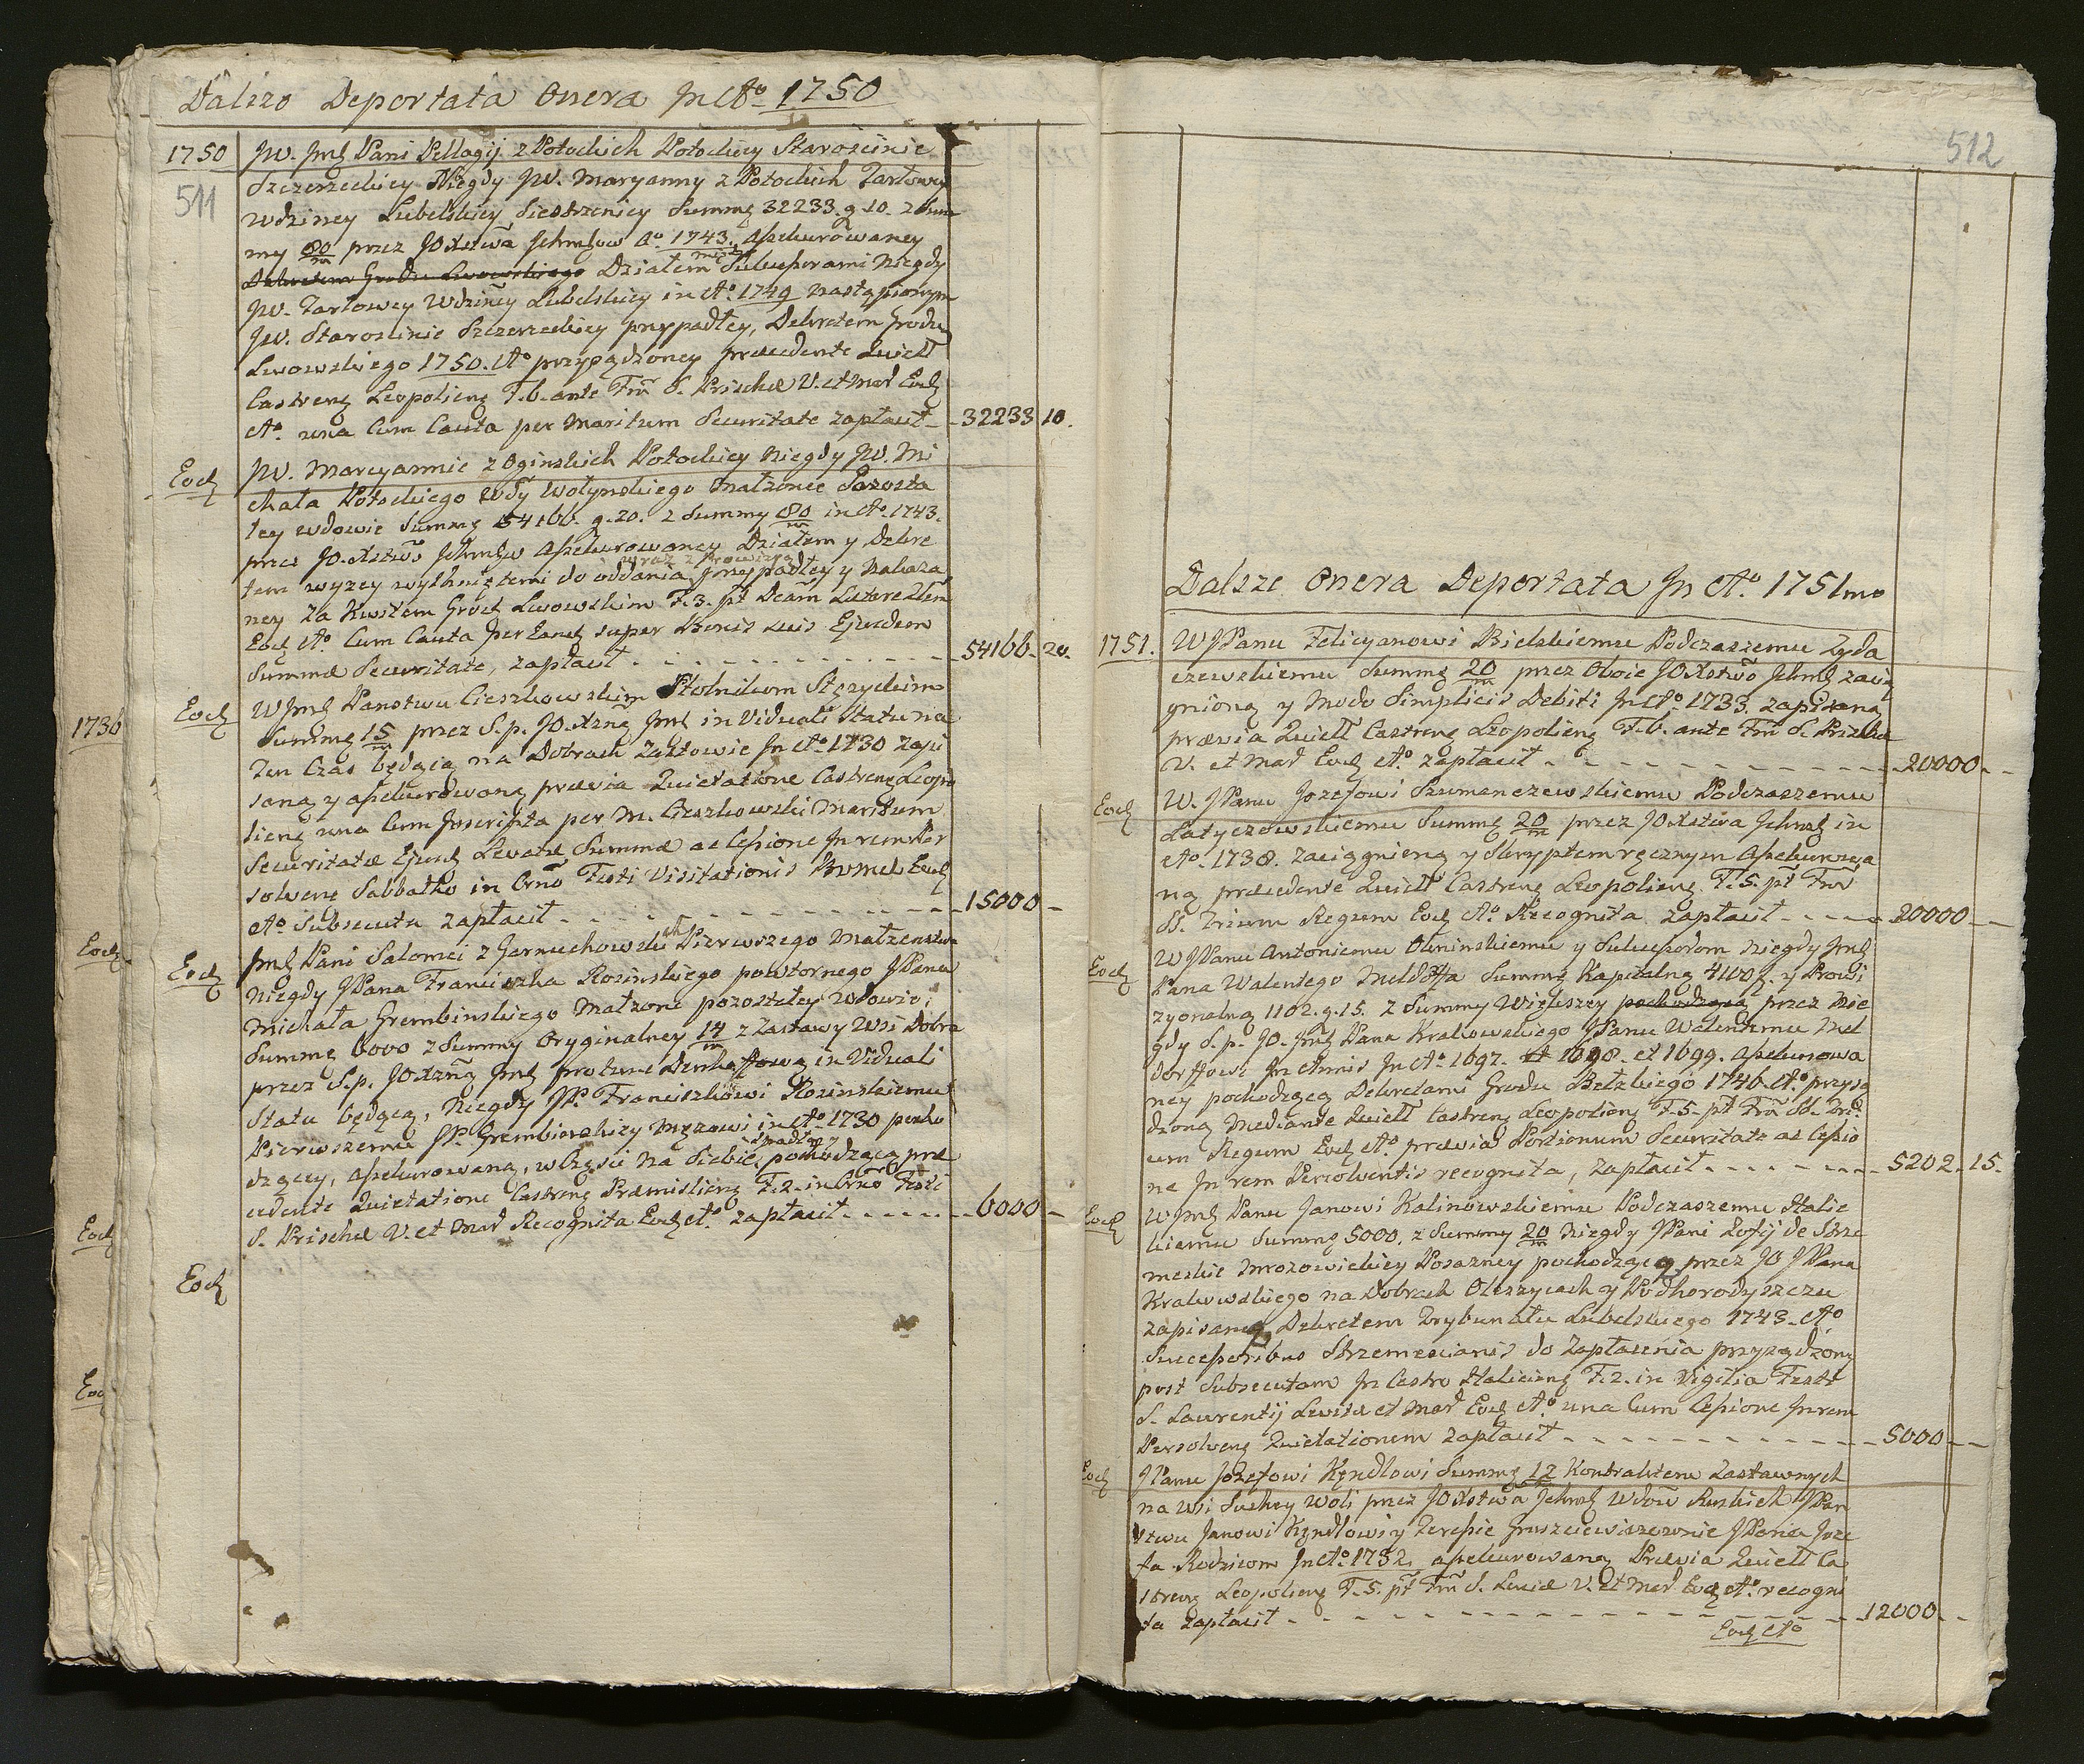 Dalsze Deportata Onera Jn Ao 1750
1750 JW. Jmć Pani Pellagij z Potockich Potockiey Starościnie
511 Szczerzeckiey Niegdy JW. Maryanny z Potockich Tarłowey
wdziney Lubelskiey Siestrzenicy Summę 32233. g 10. z Sum
my 80/m przez JOXstwa Jchmćiow Ao 1743. Assekurowaney
Dekretem Grodu Lwowskiego Działem między Sukcessorami Niegdy
JW. Tarłowey Wdziney Lubelskiey in Ao 1749 nastąpionym
JW. Starościnie Szczerzeckiey przypadłey, Dekretem Grodu
Lwowskiego 1750. Ao przysądzoney praecedente Quiett
Castrens Leopoliens F. 6. ante Fm S. Priscae V. et Mar Eod
Ao una Cum Cauta per Maritum Securitate zapłacił - - 32233 10.
Eod JW. Maryannie z Oginskich Potockiey Niegdy JW. Mi
chała Potockiego Wdy Wołynskiego Małżonce Pozosta
łey wdowie Summę 54166. g. 20. z Summy 80/m in Ao 1743.
przez JO. Xstwo Jchmćiow Assekurowaney Działem y Dekre
wraz z Prowizyą
tem wyzey wytkniętemi do oddania przypadłey y Nakaza
ney Za Kwitem Grod Lwowskim F. 3. pt Dcam Laetare Ulem
Eod Ao Cum Cauta per Eand super Bonis suis Ejusdem
Summae Securitate, zapłacił - - - - - - - - - 54166 - 20.
1736 Eod WJmć Panstwu Cieszkowskim Stolnikom Stęzyckim
Summę 15/m przez S. p. JO. Xzną Jmć in Viduali Statu na
Ten Czas będącą na Dobrach Zastowie Jn Ao 1730 Zapi
saną y assekurowaną praevia Quietatione Castrens Leopo
liens una Cum Jnscripta per M. Cieszkowski Maritum
Securitatae Ejusd Levatae Summae ac Cessione Jn rem Per
solvens Sabbatho in Crno Festi Visitationis Bvmae Eod
Ao Subsecuta zapłacił - - - - - - - - - 15000 -
Eod Eod Jmć Pani Salomei z Garnuchowskich Pierwszego Małzenstwa
Niegdy JPana Franciszka Rosinskiego powtornego JPana
Michała Grembinskiego Małzone pozostałey Wdowie,
Summę 6000 z Summy Oryginalney 14/m z Zastawy Wsi Dobra
przez S. p. JOXzną Jmć pro tunc Denhoffową in Viduali
Statu będącą, Niegdy JP. Franciszkowi Rosinskiemu
Pierwszemu JP. Grembinskiey Męzowi in Ao 1730 pocho
spadłą
dzącey, assekurowaną, w Części na Siebie pochodzącą prae
cedente Quietatione Castrens Praemisliens F. 2. in Crno Festi
Eod S. Priscae V. et Mar Recognita Eod Ao zapłacił - - - - - 6000 -
Eod
Eod
512
Dalsze Onera Deportata Jn Ao 1751mo
1751. WJPanu Felicyanowi Bielskiemu Podczaszemu Zyda
czewskiemu Summę 20/m przez Oboie JOXstwo Jchmć zacią
gnioną y modo Simplicis Debiti Jn Ao 1733. zapisaną
praevia Quiett Castrens Leopoliens F. 6. ante Fm S. Priscae
V. et Mar Eod Ao zapłacił - - - - - - - - 20000 - -
Eod W. JPanu Jozefowi Szumanczewskiemu Podczaszemu
Latyczowskiemu Summę 20/m przez JOXstwa Jchmć in
Ao 1738. zaciągnieną y Skryptem ręcznym Assekurowa
ną praecedente Quiett Castrens Leopoliens F. 5. pt Fm
SS. Trium Regum Eod Ao Recognita zapłacił - - - - 20000 - -
Eod WJPanu Antoniemu Oleninskiemu y Sukcessorom Niegdy Jmć
Pana Walentego Meldorffa Summę Kapitalną 4100 f. y Prowi
zyonalną 1102. g. 15. z Summy Większey pochodzącą przez Nie
gdy S. p. JO. Jmć Pana Krakowskiego JPanu Walentemu Mel
dorffowi Jn Annis Jn Ao 1697. et 1698. et 1699. Assekurowa
ney pochodzącą Dekretami Grodu Bełzkiego 1746. Ao przysą
dzoną Mediante Quiett Castrens Leopoliens F. 5. pt Fm SS. Tri
um Regum Eod Ao praevia Portionum Securitate ac Cessio
ne Jn rem Persolventis recognita, zapłacił - - - - - - 5202. 15.
Eod WJmć Panu Janowi Kalinowskiemu Podczaszemu Halic
kiemu Summę 5000. z Summy 20/m Niegdy JPani Zofij de Strze
meskie Mrozowickiey Posazney pochodzącą przez JO JPana
Krakowskiego na Dobrach Oleszycach y Podhorodyszczu
zapisaną Dekretem Trybunału Lubelskiego 1743. Ao
Successoribus Strzemescianis do Zapłacenia przysądzoną
post Subsecutam Jn Castro Haliciens F. 2. in Vigilia Festi
S. Laurentij Levitae et Mar Eod Ao una Cum Cessione Jn rem
Persolvens Quietationem zapłacił - - - - - - - - - 5000 - -
Eod JPanu Jozefowi Kęndlowi Summę 12/m Kontraktem Zastawnych
na Wsi Suchey Woli przez JOXstwa Jchmć Wdow Ruskich JPan
stwu Janowi Kęndlowi y Teressie Gruszczewiczownie JPana Joze
fa Rodzicom Jn Ao 1732. assekurowaną Praevia Quiett Ca
strens Leopoliens F. 5. pt Fm S. Luciae V. et Mar Eod Ao recogni
ta Zapłacił - - - - - - - - - - 12000 - -
Eod Ao